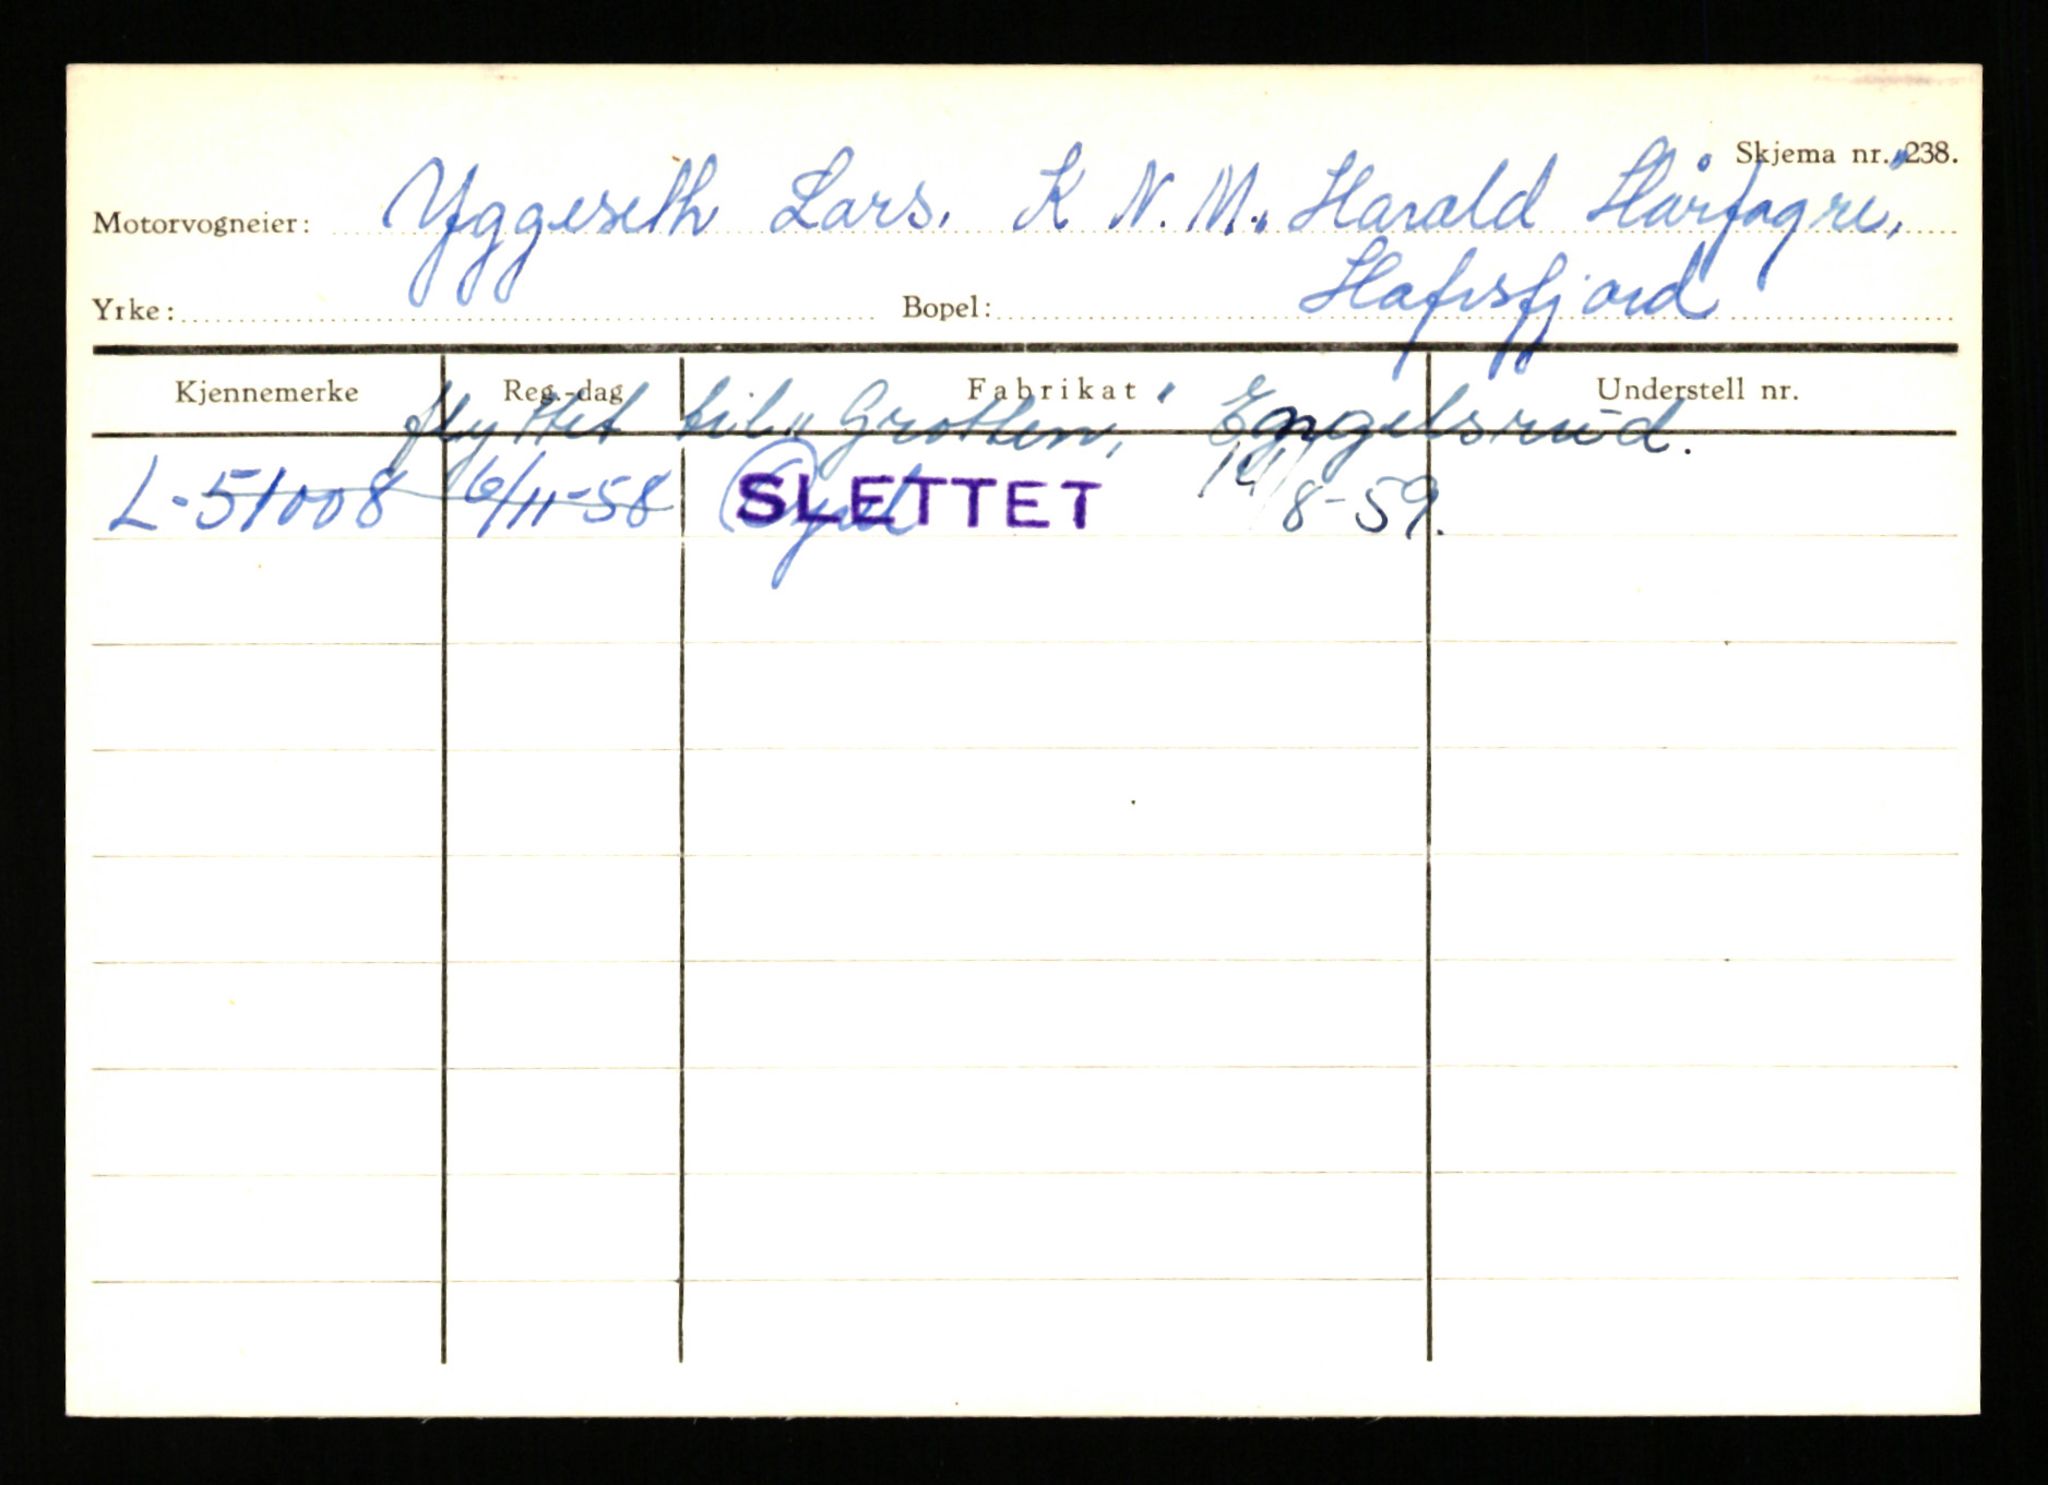 Skjema nr. 238.
Motorvogneier: Yggeseth Lars. K.N.M. „Harald Hårfagre",
Yrke: Bopel: Hafrsfjord
Kjennemerke Reg.-dag Fabrikat Understell nr.
flyttet til „Grotten", Engelsrud.
L-51008 6/11-58 SLETTET 14/8-59.